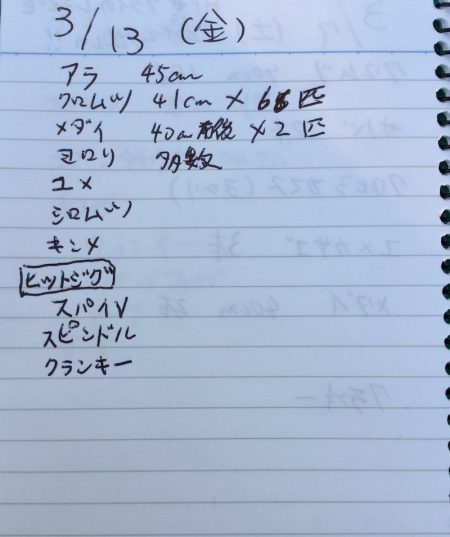 3/13 (金)
アラ 45cm
クロムツ 41cm × 6匹
メダイ 40cm前後 × 2匹
ヨロリ 多数
ユメ
シロムツ
キンメ
ヒットジグ
スパイV
スピンドル
クランキー